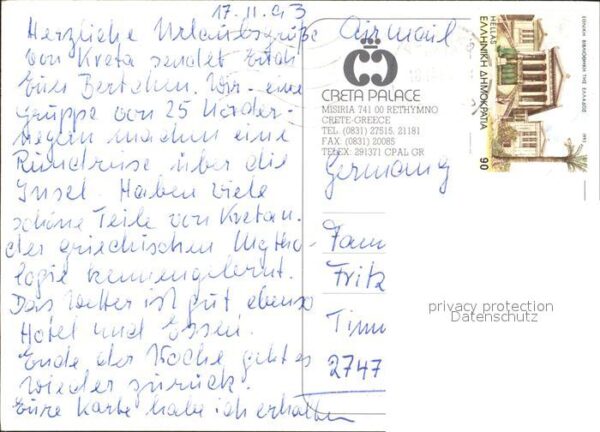 17.11.93
Herzliche Urlaubsgrüße
von Kreta sendet Euch
Euer Bertchen. Wir - eine
Gruppe von 25 Norder-
neyern machen eine
Rundreise über die
Insel. Haben viele
schöne Teile von Kreta u.
der griechischen Mytho-
logie kennengelernt.
Das Wetter ist gut ebenso
Hotel und Essen.
Ende der Woche geht es
wieder zurück.
Eure Karte habe ich erhalten
Air mail
CRETA PALACE
MISIRIA 741 00 RETHYMNO
CRETE-GREECE
TEL. (0831) 27515, 21181
FAX. (0831) 20085
TELEX: 291371 CPAL GR
Germany
Fam
Fritz
Timm
2747
HELLAS
ΕΛΛΗΝΙΚΗ ΔΗΜΟΚΡΑΤΙΑ
90
ΕΘΝΙΚΗ ΒΙΒΛΙΟΘΗΚΗ ΤΗΣ ΕΛΛΑΔΟΣ
privacy protection
Datenschutz